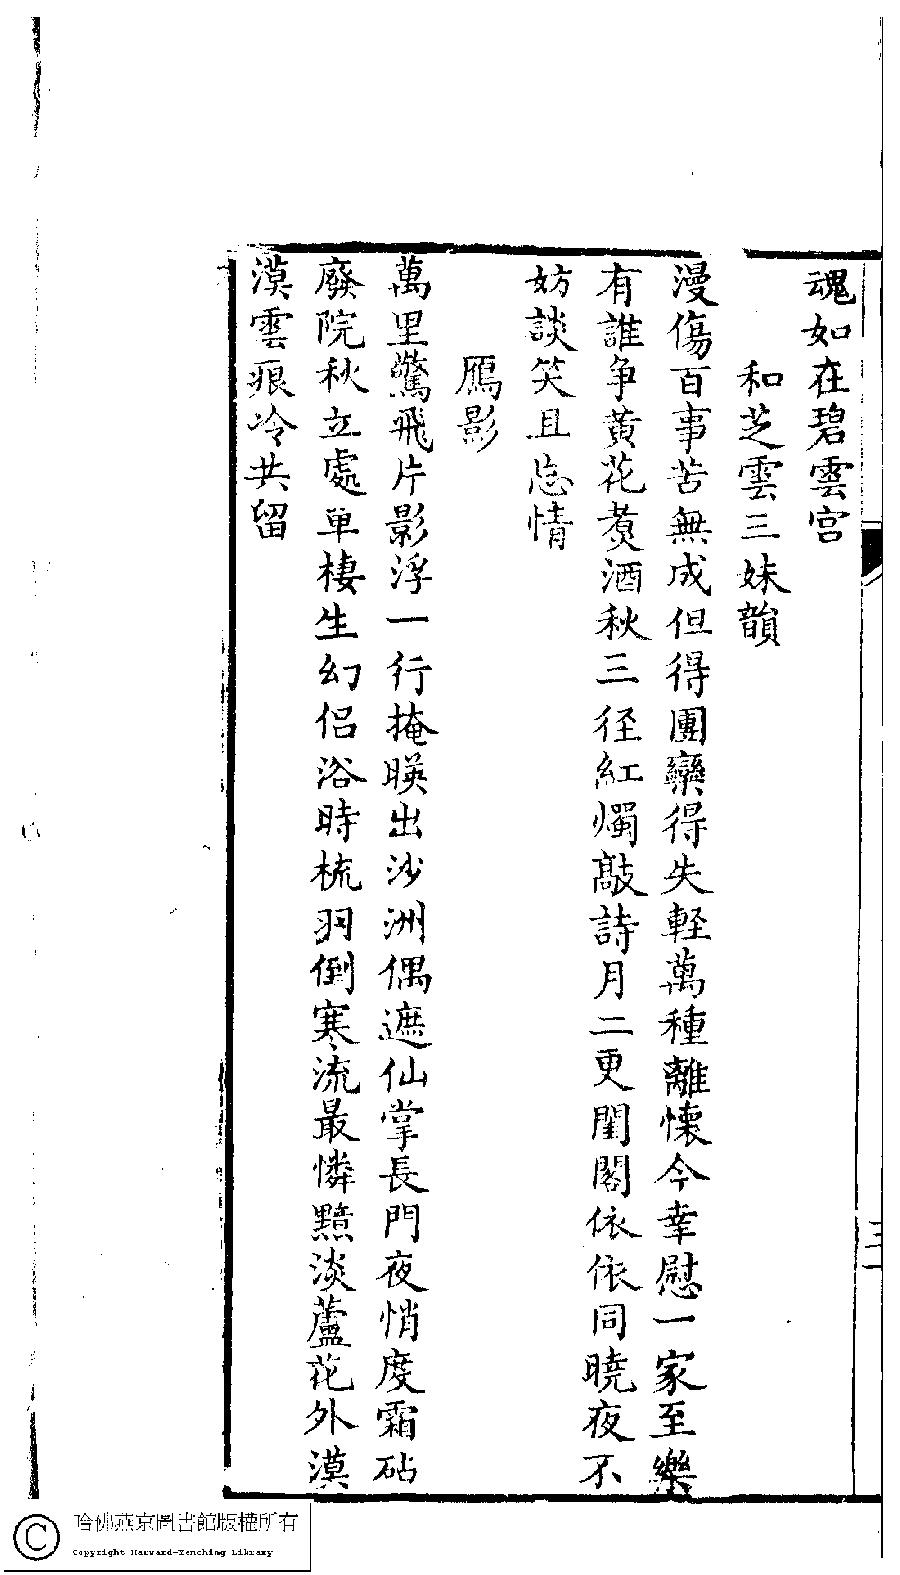 魂如在碧雲宮
和芝雲三妹韻
漫傷百事苦無成但得團欒得失輕萬種離懷今幸慰一家至樂
有誰爭黃花煑酒秋三徑紅燭敲詩月二更閨閣依依同曉夜不
妨談笑且忘情
鴈影
萬里驚飛片影浮一行掩暎出沙洲偶遮仙掌長門夜悄度霜砧
廢院秋立處单棲生幻侶浴時梳羽倒寒流最憐黯淡蘆花外漠
漠雲痕冷共留
三
哈佛燕京圖書館版權所有
Copyright Harvard-Yenching Library